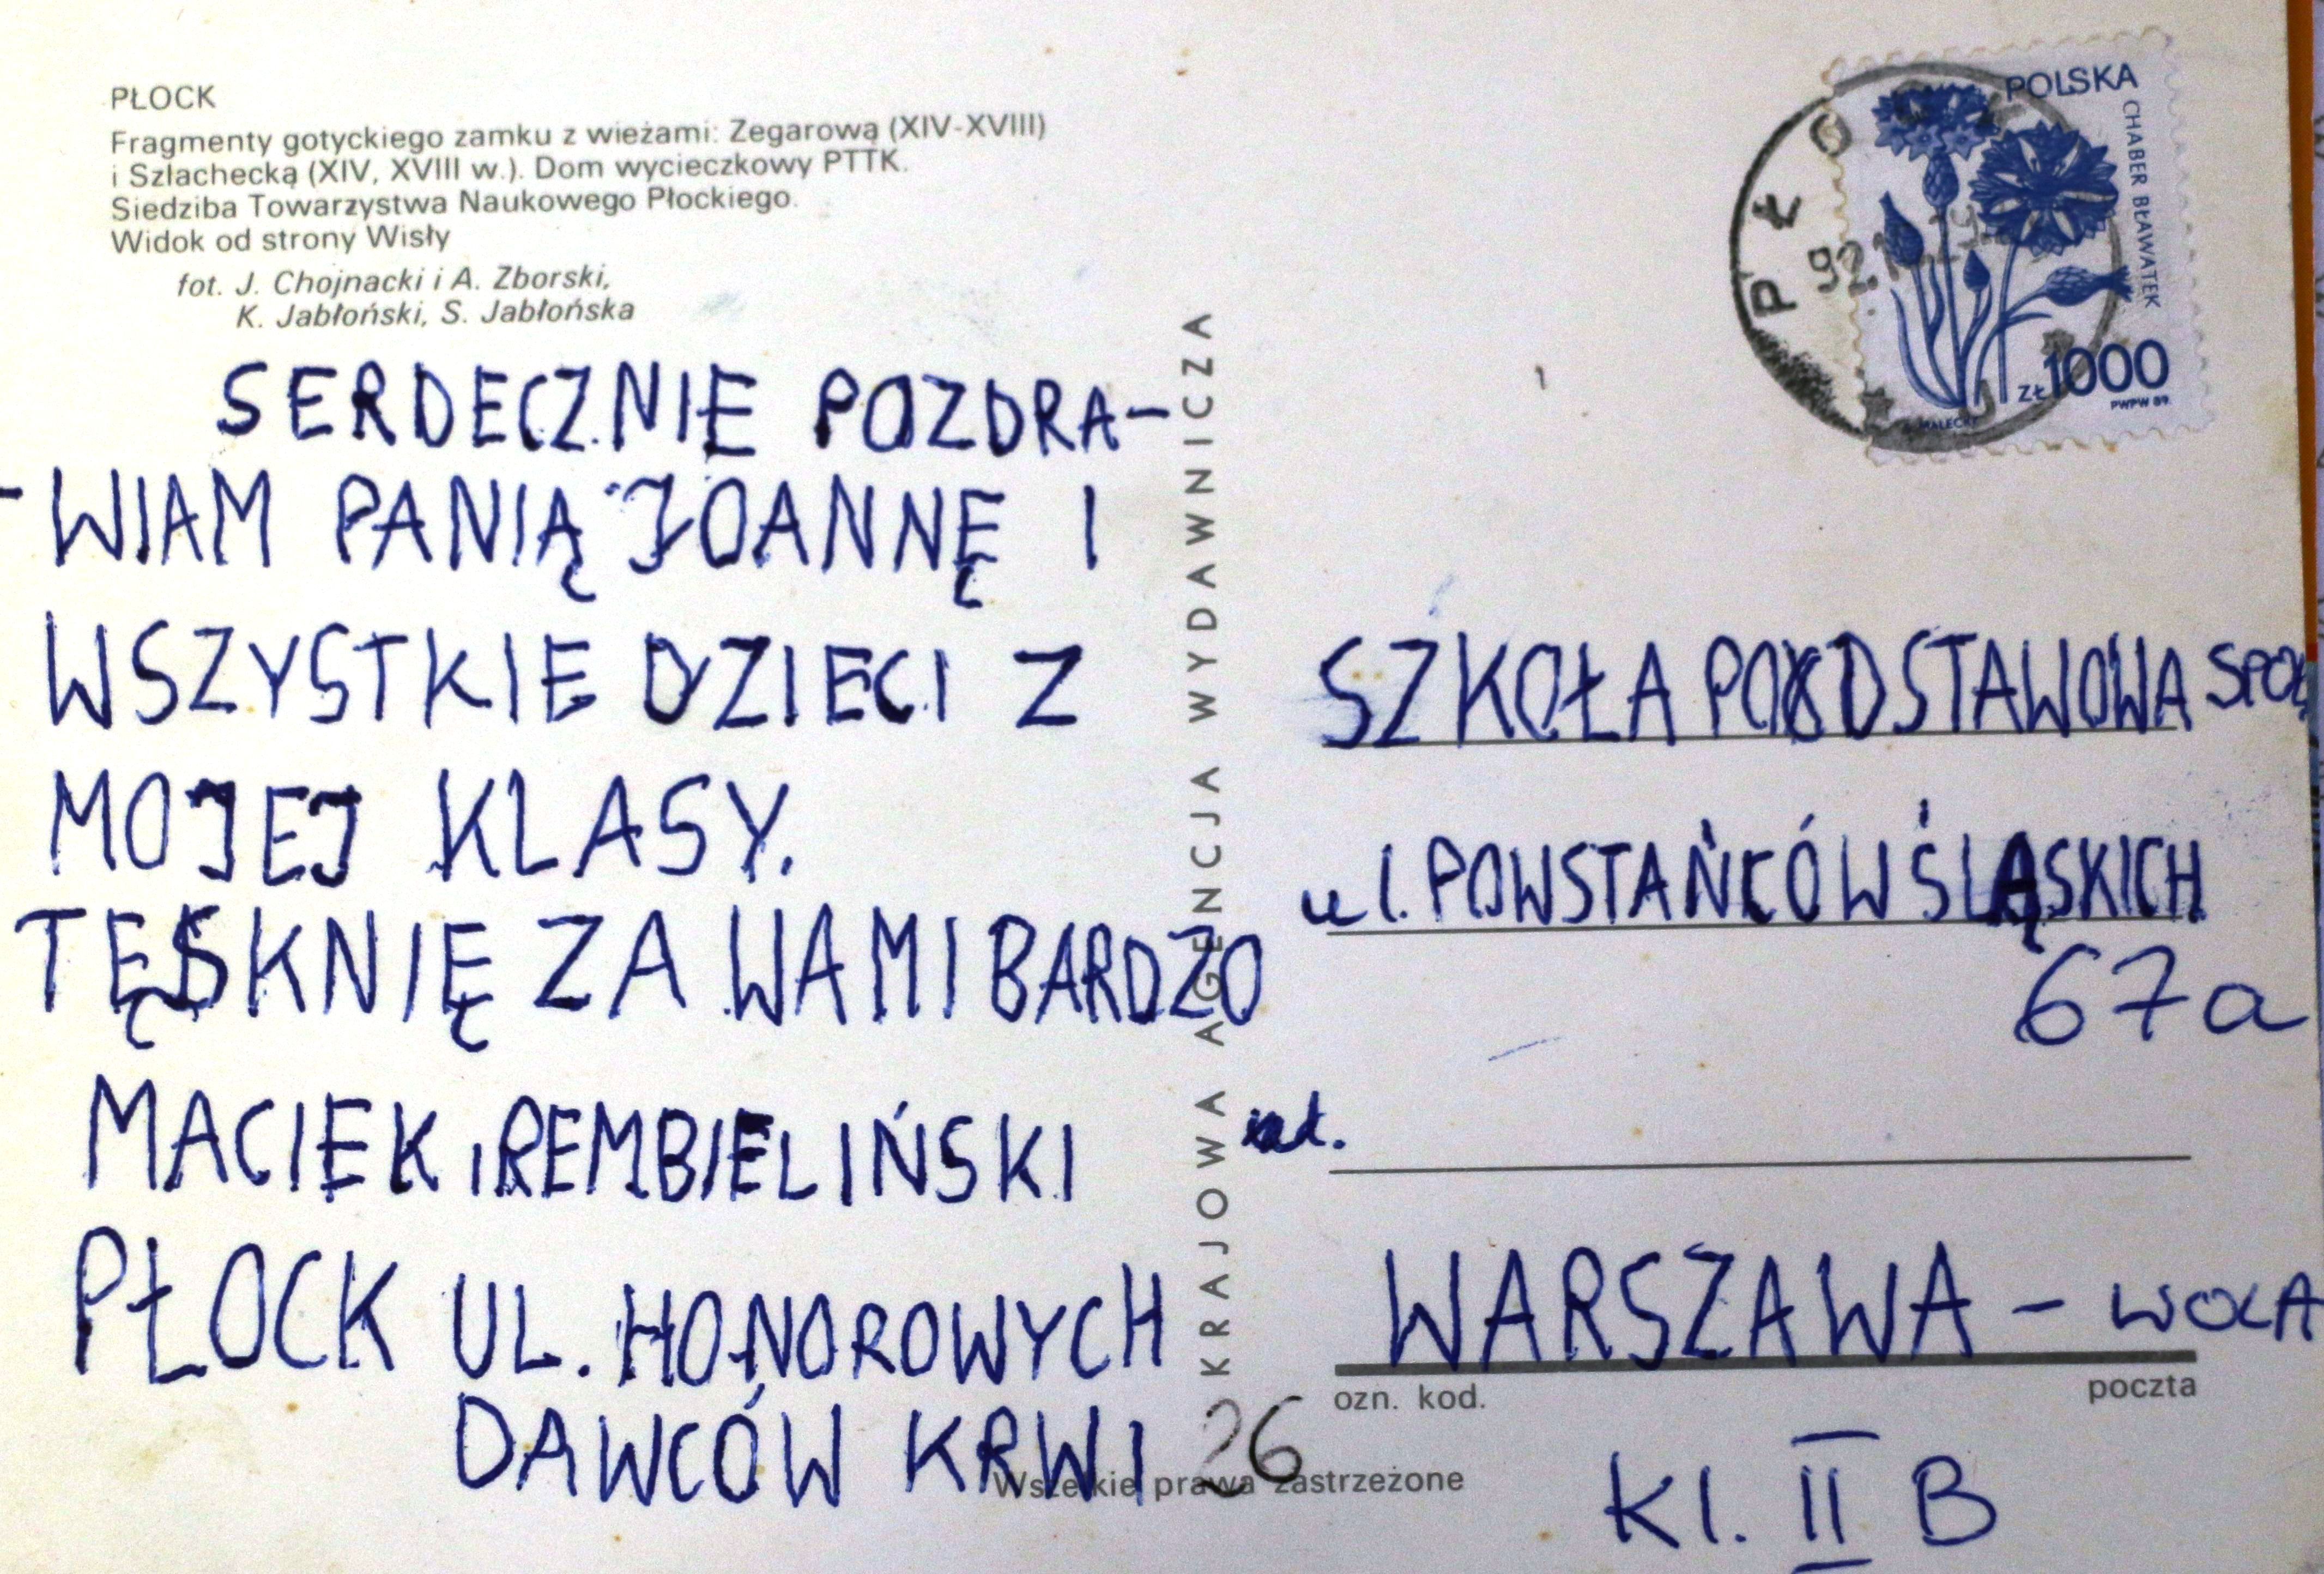 PŁOCK
Fragmenty gotyckiego zamku z wieżami: Zegarową (XIV-XVIII)
i Szlachecką (XIV, XVIII w.). Dom wycieczkowy PTTK.
Siedziba Towarzystwa Naukowego Płockiego.
Widok od strony Wisły
fot. J. Chojnacki i A. Zborski,
K. Jabłoński, S. Jabłońska
SERDECZNIE POZDRA-
-WIAM PANIĄ JOANNĘ I
WSZYSTKIE DZIECI Z
MOJEJ KLASY.
TĘSKNIĘ ZA WAMI BARDZO
MACIEK REMBIELIŃSKI
PŁOCK UL. HONOROWYCH
DAWCÓW KRWI 26
KRAJOWA AGENCJA WYDAWNICZA
Wszelkie prawa zastrzeżone
PŁOCK
POLSKA
CHABER BŁAWATEK
ZŁ 1000
PWPW 89.
MALECKI
SZKOŁA PODSTAWOWA SPOŁ
ul. POWSTAŃCÓW ŚLĄSKICH
67a
WARSZAWA - WOLA
ozn. kod.
poczta
Kl. II B